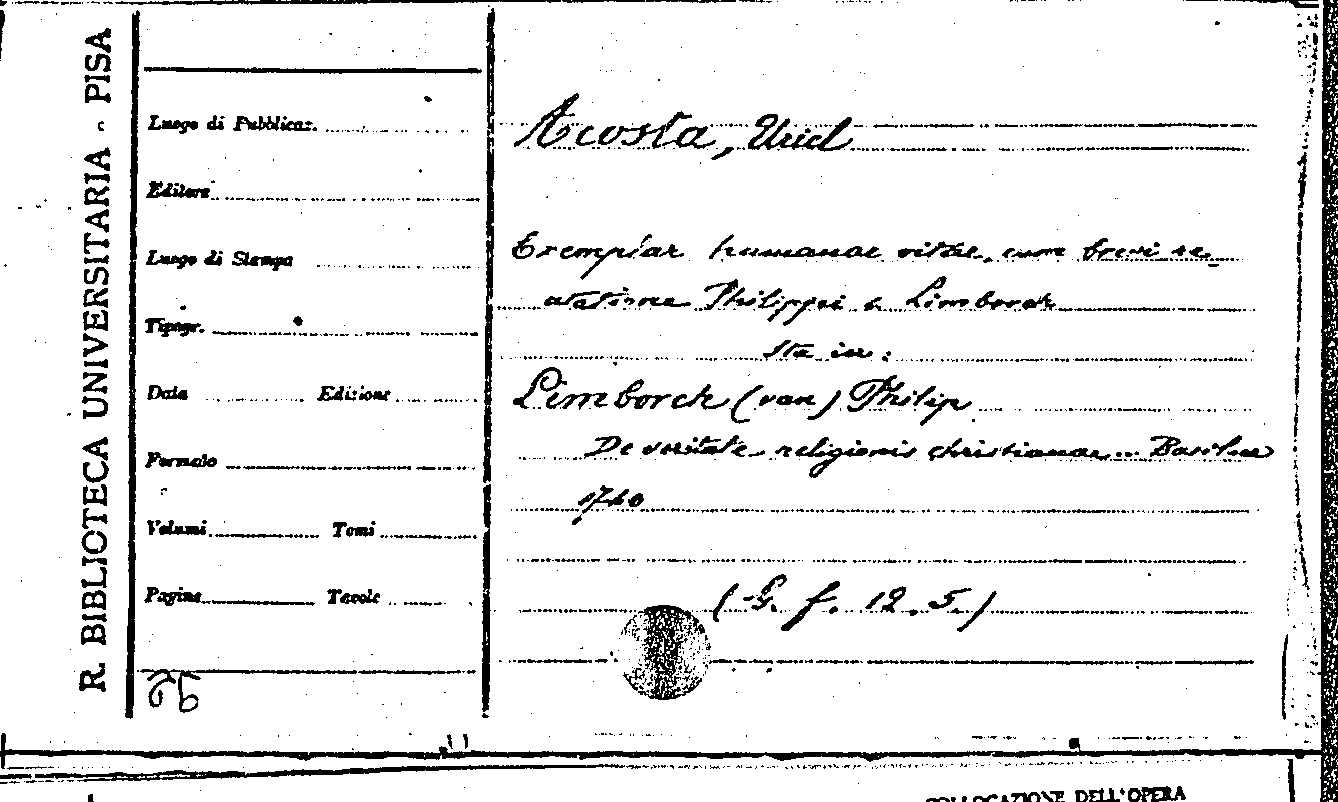 R. BIBLIOTECA UNIVERSITARIA - PISA
Luogo di Pubblicaz.
Editore
Luogo di Stampa
Tipogr.
Data Edizione
Formato
Volumi Tomi
Pagine Tavole
Acosta, Uriel
Exemplar humanae vitae, cum brevi re-
Philippi a Limborch
Sta in:
Limborch (van) Philip
De veritate religionis christianae... Basileae
1740
(G. f. 12. 5.)
COLLOCAZIONE DELL'OPERA